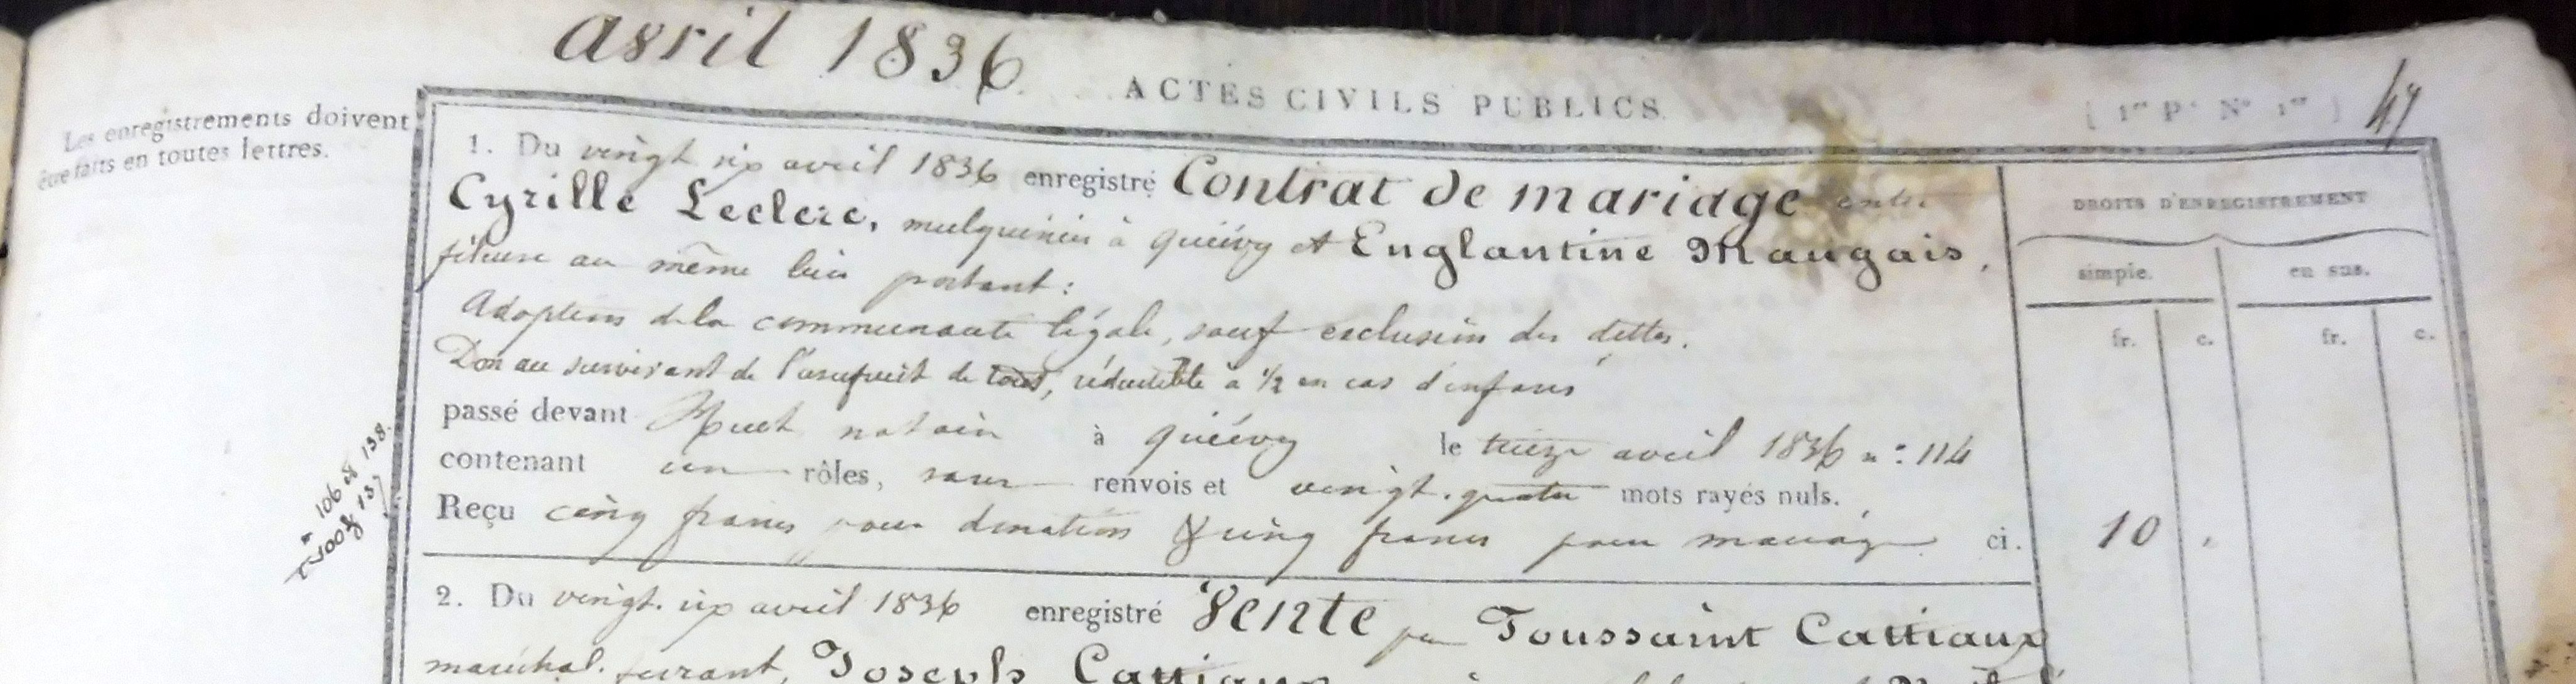 avril 1836
ACTES CIVILS PUBLICS.
[ 1er P. No 1er ] 47
Les enregistrements doivent
être faits en toutes lettres.
1. Du vingt six avril 1836 enregistré Contrat de mariage entre
Cyrille Leclerc, mulquinier à quiévy et Englantine Maugais,
fileuse au même lieu portant :
Adoption de la communauté légale, sauf exclusion des dettes.
Don au survivant de l'usufruit de tout, réductible à 1/2 en cas d'enfans
passé devant notaire à quiévy le treize avril 1836 n° 114
contenant un rôles, sans renvois et vingt-quatre mots rayés nuls.
Reçu cinq francs pour donation & cinq francs pour mariage ci.
DROITS D'ENREGISTREMENT
simple. en sus.
fr. c. fr. c.
10 "
106 & 138.
100 & 137
2. Du vingt-six avril 1836 enregistré Vente par Toussaint Cattiaux
maréchal-ferrant, Joseph Cattiaux